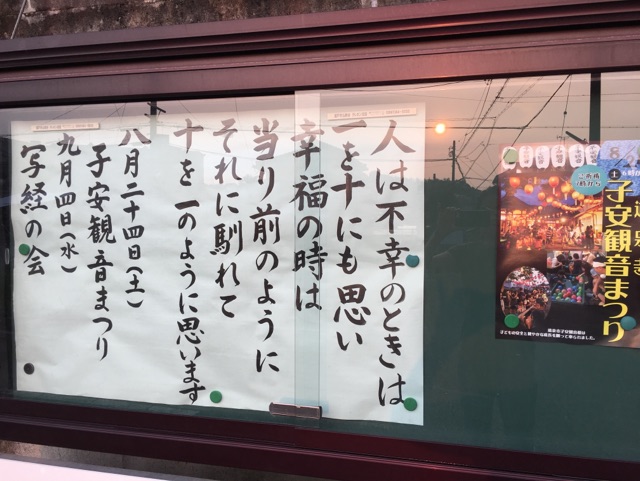 人は不幸のときは
一を十にも思い
幸福の時は
当り前のように
それに馴れて
十を一のように思います
八月二十四日(土)
子安観音まつり
九月四日(水)
写経の会
子安観音まつり